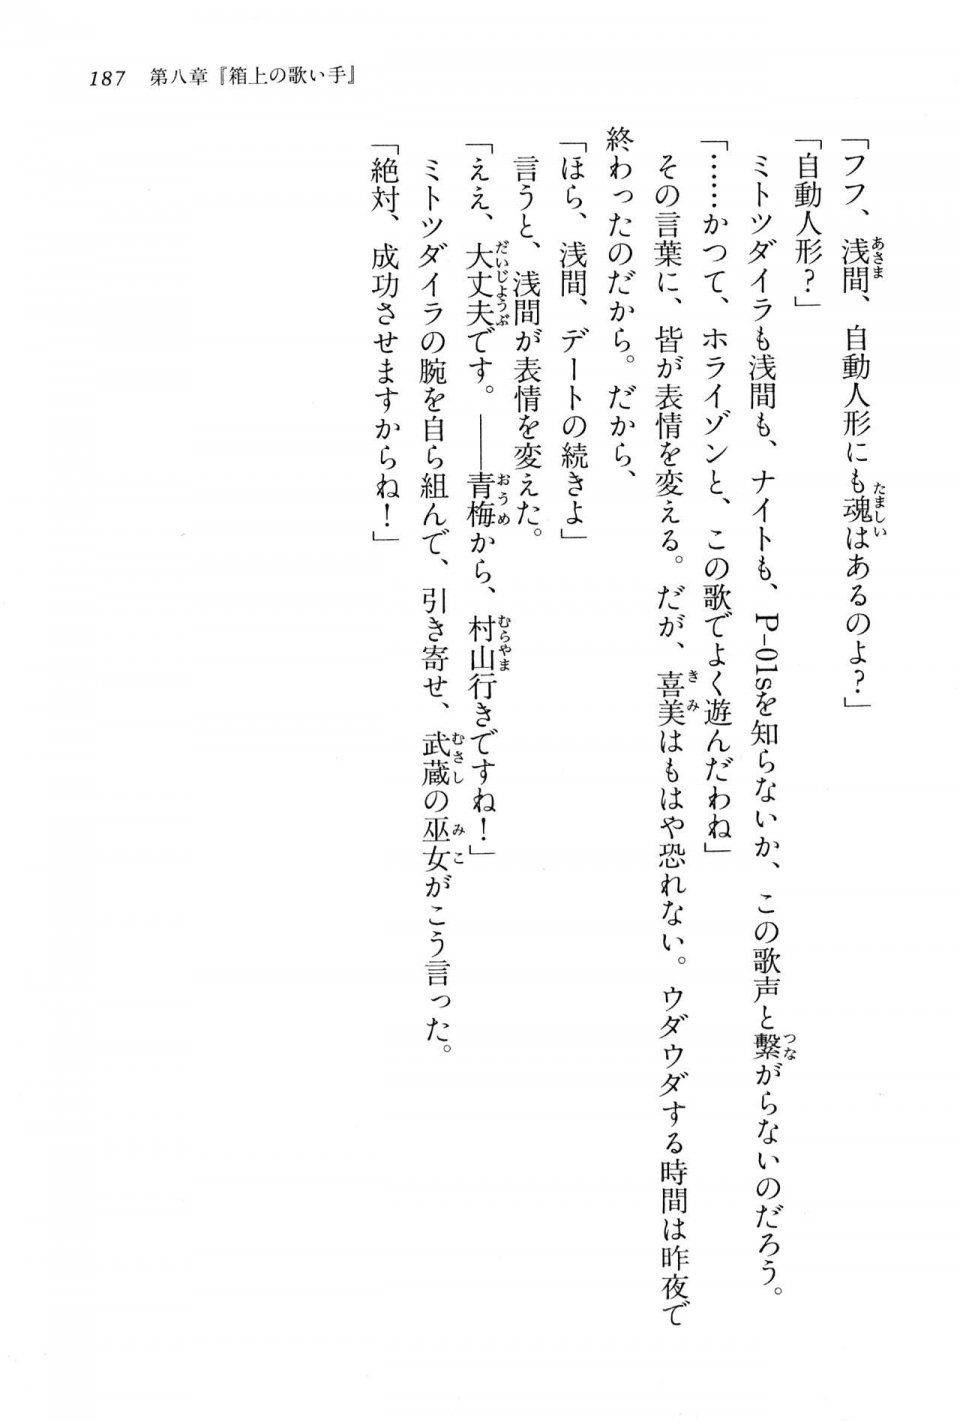 187 第八章『箱上の歌い手』
「フフ、浅間、自動人形にも魂はあるのよ?」
「自動人形?」
ミトツダイラも浅間も、ナイトも、P-01sを知らないか、この歌声と繫がらないのだろう。
「……かつて、ホライゾンと、この歌でよく遊んだわね」
その言葉に、皆が表情を変える。だが、喜美はもはや恐れない。ウダウダする時間は昨夜で
終わったのだから。だから、
「ほら、浅間、デートの続きよ」
言うと、浅間が表情を変えた。
「ええ、大丈夫です。――青梅から、村山行きですね!」
ミトツダイラの腕を自ら組んで、引き寄せ、武蔵の巫女がこう言った。
「絶対、成功させますからね!」